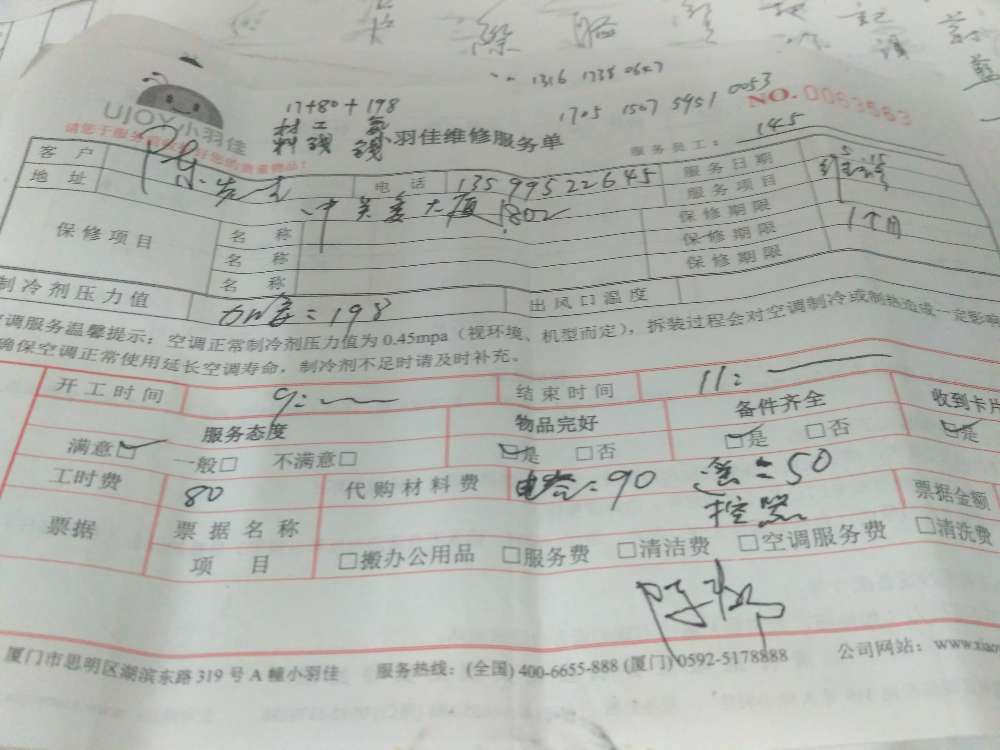 1316 1738 0647
1705 1507 5951 0053
17+80+198
材 工 氨
料 钱 钱
UJOY小羽佳
小羽佳维修服务单
NO. 0063563
请您于服务前收好您的贵重物品：
服务员工： 145
客 户 陈先生 电 话 13599522645 服务日期
地 址 大厦 1802 服务项目
保修项目 名 称 保修期限 1个月
名 称 保修期限
名 称 保修期限
制冷剂压力值 加氨=198 出风口温度
空调服务温馨提示：空调正常制冷剂压力值为 0.45mpa（视环境、机型而定），拆装过程会对空调制冷或制热造成一定影响
确保空调正常使用延长空调寿命，制冷剂不足时请及时补充。
开工时间 9： 结束时间 11：
服务态度 物品完好 备件齐全 收到卡片
满意☑ 一般□ 不满意□ ☑是 □否 ☑是 □否 ☑是
工时费 80 代购材料费 电容=90 遥=50
控器
票据 票据名称 票据金额
项 目 □搬办公用品 □服务费 □清洁费 □空调服务费 □清洗费
厦门市思明区湖滨东路 319 号 A 幢小羽佳 服务热线：(全国) 400-6655-888 (厦门) 0592-5178888 公司网站：www.xiao